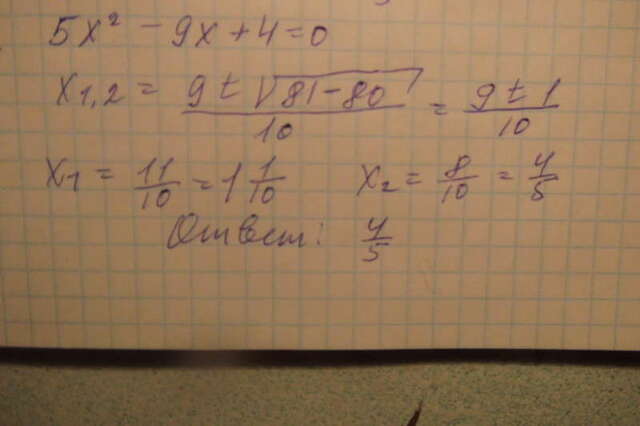 5x² - 9x + 4 = 0
x₁,₂ = (9 ± √(81 - 80))/10 = (9 ± 1)/10
x₁ = 11/10 = 1 1/10 x₂ = 8/10 = 4/5
Ответ: 4/5